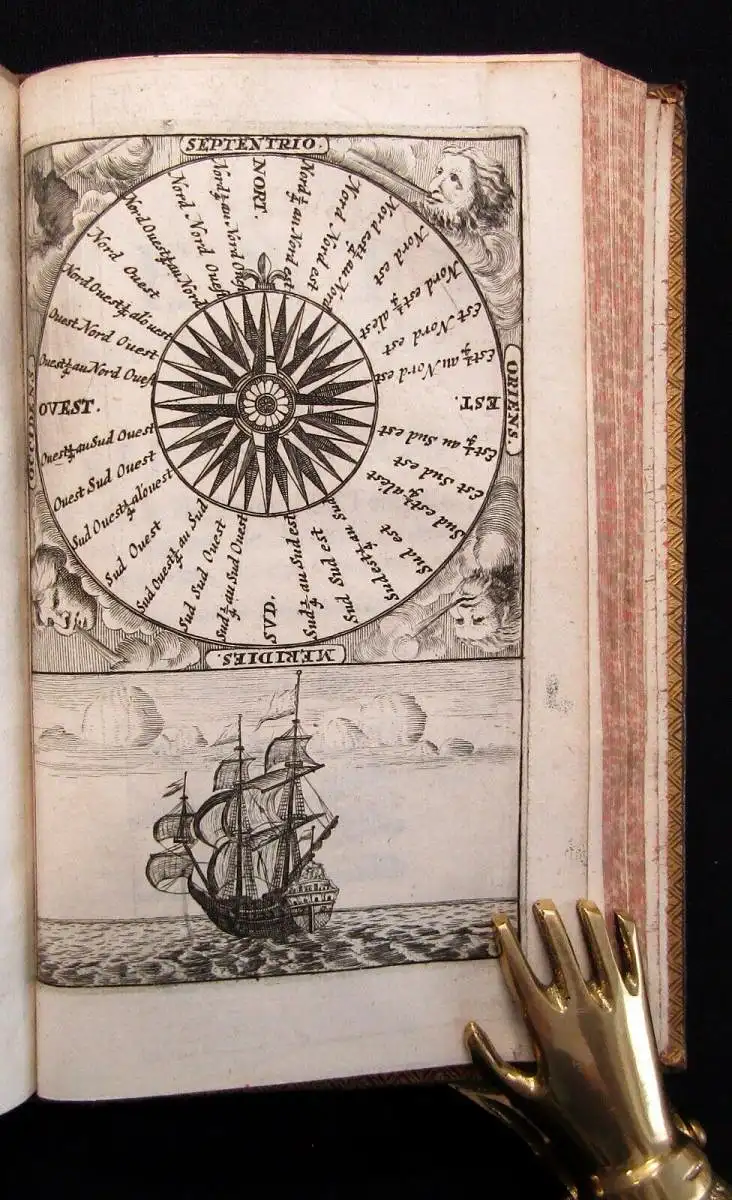 SEPTENTRIO.
NORT.
Nord ¼ au Nord est
Nord Nord est
Nord est ¼ au Nord
Nord est
Nord est ¼ alest
Est Nord est
Est ¼ au Nord est
EST.
ORIENS.
Est ¼ au Sud est
Est Sud est
Sud est ¼ alest
Sud est
Sud est ¼ au Sud
Sud Sud est
Sud ¼ au Sud est
SVD.
MERIDIES.
Sud ¼ au Sud Ouest
Sud Sud Ouest
Sud Ouest ¼ au Sud
Sud Ouest
Sud Ouest ¼ al'ouest
Ouest Sud Ouest
Ouest ¼ au Sud Ouest
OVEST.
OCCIDENS
Ouest ¼ au Nord Ouest
Ouest Nord Ouest
Nord Ouest ¼ al'ouest
Nord Ouest
Nord Ouest ¼ au Nord
Nord Nord Ouest
Nord ¼ au Nord Oue